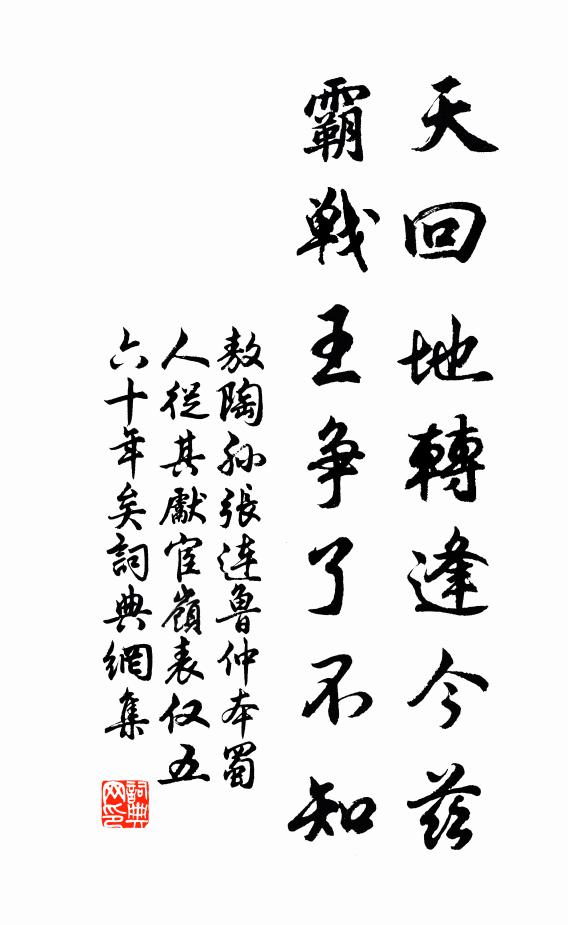 天回地轉逢今茲
霸戰王争了不知
敖陶孫張連魯仲本蜀
人從其獻宦嶺表仅五
六十年矣詞典網集
詞典网印